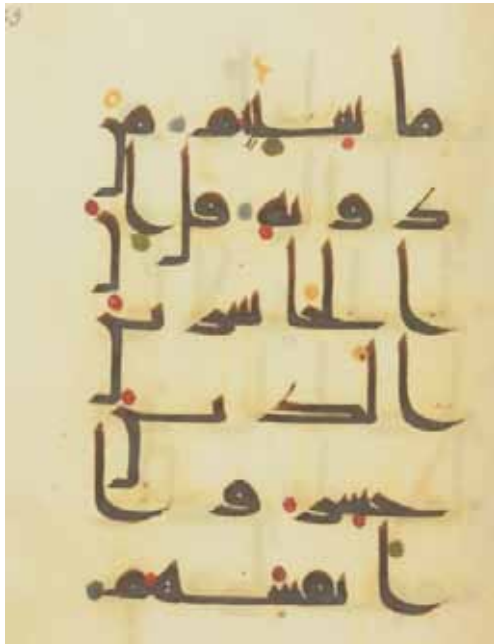 ما شئتم من
دونه قل ان
الخاسرين
الذين
خسروا
انفسهم